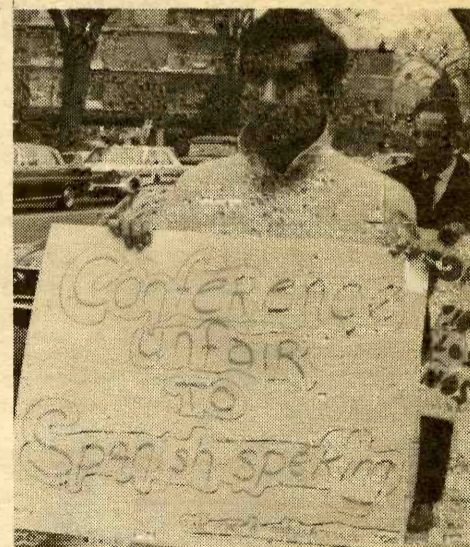 Conference
unfair
TO
Spanish speking